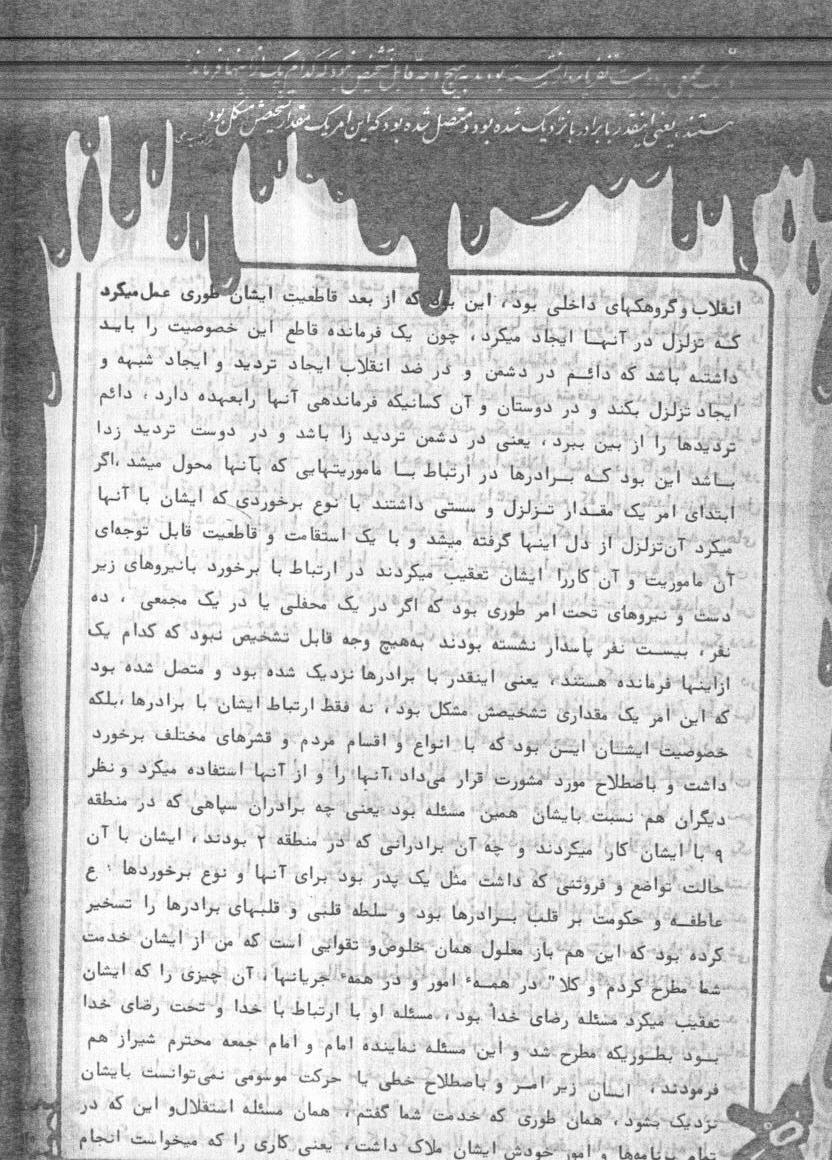 یک مجمعی بیست نفر پاسدار نشسته بودند به هیچ وجه قابل تشخیص نبود که کدام یک از اینها فرمانده
هستند، یعنی اینقدر با برادرها نزدیک شده بود و متصل شده بود که این امر یک مقدار تشخیصش مشکل بود
انقلاب و گروهکهای داخلی بود، این بود که از بعد قاطعیت ایشان طوری عمل میکرد
کـه تزلزل در آنهـا ایجاد میکرد، چون یک فرمانده قاطع این خصوصیت را بایـد
داشتـه باشد که دائـم در دشمن و در ضد انقلاب ایجاد تردید و ایجاد شبهه و
ایجاد تزلزل بکند و در دوستان و آن کسانیکه فرماندهی آنها رابعهده دارد، دائم
تردیدها را از بین ببرد، یعنی در دشمن تردید زا باشد و در دوست تردید زدا
بـاشد این بود کـه بـرادرها در ارتباط بـا ماموریتهایی که بآنها محول میشد،اگر
ابتدای امر یک مقـدار تـزلزل و سستی داشتند با نوع برخوردی که ایشان با آنهـا
میکرد آن‌تزلزل از دل اینها گرفته میشد و با یک استقامت و قاطعیت قابل توجه‌ای
آن ماموریت و آن کاررا ایشان تعقیب میکردند در ارتباط با برخورد بانیروهای زیر
دست و نیروهای تحت امر طوری بود که اگر در یک محفلی یا در یک مجمعی ، ده
نفر، بیسـت نفر پاسدار نشسته بودند به‌هیچ وجه قابل تشخیص نبود که کدام یک
ازاینها فرمانده هستند، یعنی اینقدر با برادرها نزدیک شده بود و متصل شده بود
که این امر یک مقداری تشخیصش مشکل بود، نه فقط ارتباط ایشان با برادرها،بلکه
خصوصیت ایشـان ایـن بود که با انواع و اقسام مردم و قشرهای مختلف برخورد
داشت و باصطلاح مورد مشورت قرار می‌داد،آنها را و از آنها استفاده میکرد و نظر
دیگران هم نسبت بایشان همین مسئله بود یعنی چه برادران سپاهی که در منطقه
۹ با ایشان کار میکردند و چه آن برادرانی که در منطقه ۲ بودند، ایشان با آن
حالت تواضع و فروتنی که داشت مثل یک پدر بود برای آنها و نوع برخوردها ع
عاطفـه و حکومت بر قلب بـرادرها بود و سلطه قلبی و قلبهای برادرها را تسخیر
کرده بود که این هم باز معلول همان خلوص‌و تقوایی است که من از ایشان خدمت
شما مطرح کردم و کلا" در همـه‌ٔ امور و در همه‌ٔ جریانها، آن چیزی را که ایشان
تعقیب میکرد مسئله رضای خدا بود، مسئله او با ارتباط با خدا و تحت رضای خدا
بـود بطـوریکه مطرح شد و این مسئله نماینده امام و امام جمعه محترم شیراز هم
فرمودند، انسان زیر امـر و باصطلاح خطی یا حرکت موسومی نمی‌توانست بایشان
نزدیک بشود، همان طوری که خدمت شما گفتم، همان مسئله استقلال‌و این که در
تمام برنامه‌ها و امور خودش ایشان ملاک داشت، یعنی کاری را که میخواست انجام